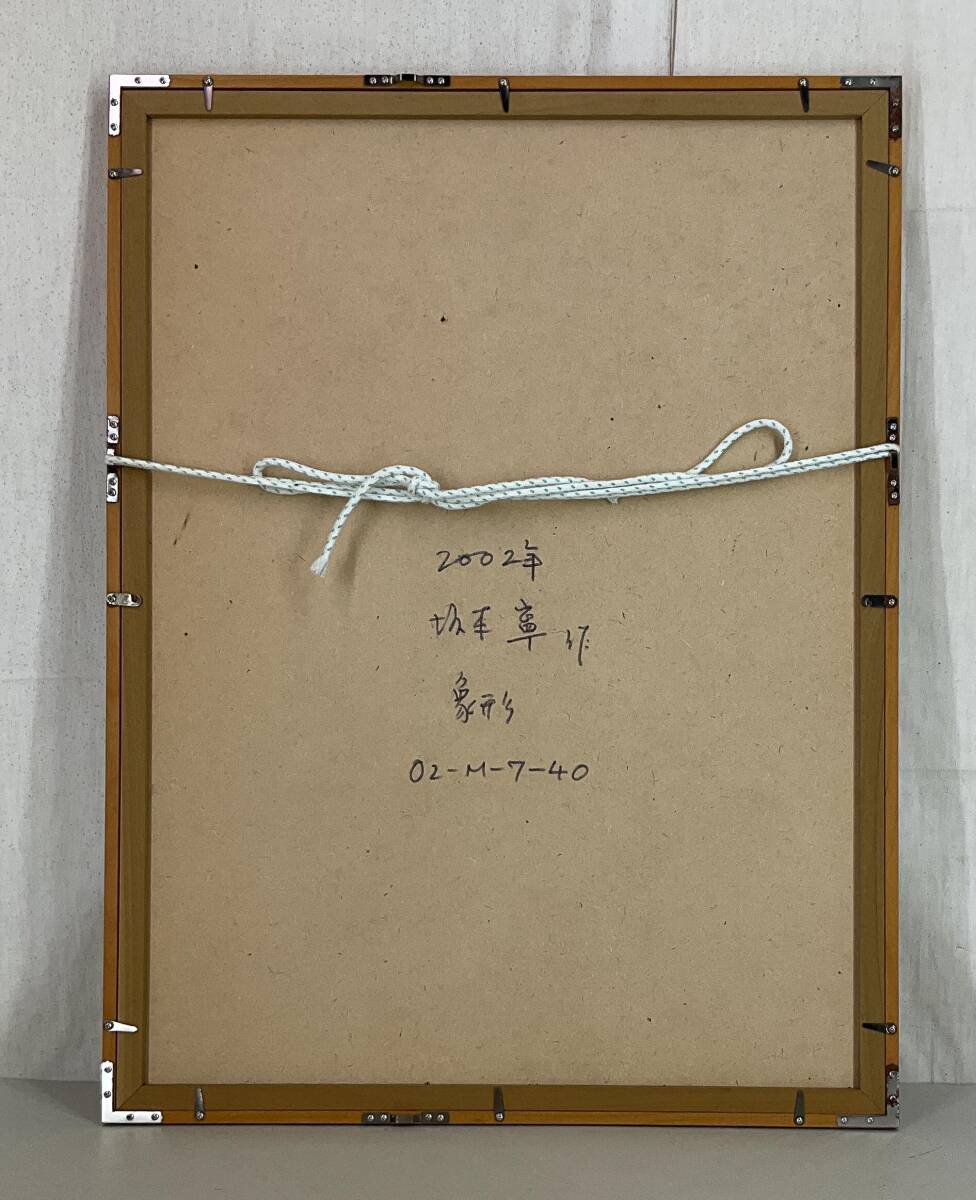 2002年
坂本 作
象形
02-M-7-40